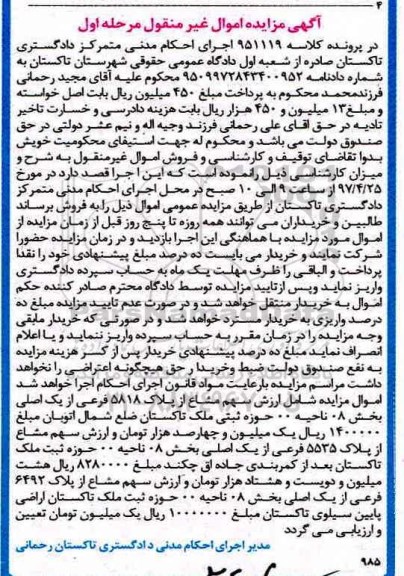 ۴
آگهی مزایده اموال غیر منقول مرحله اول
در پرونده کلاسه ۹۵۱۱۱۹ اجرای احکام مدنی متمرکز دادگستری
تاکستان صادره از شعبه اول دادگاه عمومی حقوقی شهرستان تاکستان به
شماره دادنامه ۹۵۰۹۹۷۲۸۴۳۴۰۰۹۵۲ محکوم علیه آقای مجید رحمانی
فرزندمحمد محکوم به پرداخت مبلغ ۴۵۰ میلیون ریال بابت اصل خواسته
و مبلغ۱۳ میلیون و ۴۵۰ هزار ریال بابت هزینه دادرسی و خسارت تاخیر
تادیه در حق آقای علی رحمانی فرزند وجیه اله و نیم عشر دولتی در حق
صندوق دولت می باشد و محکوم له جهت استیفای محکومیت خویش
بدوا تقاضای توقیف و کارشناسی و فروش اموال غیرمنقول به شرح و
میزان کارشناسی ذیل رانموده است که این اجرا قصد دارد در مورخ
۹۷/۴/۲۵ از ساعت ۹ الی ۱۰ صبح در محل اجرای احکام مدنی متمرکز
دادگستری تاکستان از طریق مزایده عمومی اموال ذیل رابه فروش برساند
طالبین و خریداران می توانند همه روزه تا پنج روز قبل از زمان مزایده از
اموال مورد مزایده با هماهنگی این اجرا بازدید و در زمان مزایده حضورا
شرکت نمایند و خریدار می بایست ده درصد مبلغ پیشنهادی خود را نقدا
پرداخت و الباقی را ظرف مهلت یک ماه به حساب سپرده دادگستری
واریز نماید وپس ازتایید مزایده توسط دادگاه محترم صادر کننده حکم
اموال به خریدار منتقل خواهد شد و در صورت عدم تایید مزایده مبلغ ده
درصد واریزی به خریدار مسترد خواهد شد و در صورتی که خریدار مابقی
وجه مزایده را در زمان مقرر به حساب سپرده واریز ننماید و یا اعلام
انصراف نماید مبلغ ده درصد پیشنهادی خریدار پس از کسر هزینه مزایده
به نفع صندوق دولت ضبط وخریدار حق هیچگونه اعتراضی را نخواهد
داشت مراسم مزایده بارعایت مواد قانون اجرای احکام اجرا خواهد شد
اموال مزایده شامل ارزش سهم مشاع ازپلاک ۵۸۱۸ فرعی از یک اصلی
بخش ۰۸ ناحیه ۰۰ حوزه ثبتی ملک تاکستان ضلع شمال اتوبان مبلغ
۱۴۰۰۰۰۰۰ ریال یک میلیون و چهارصد هزار تومان و ارزش سهم مشاع
از پلاک ۵۵۳۵ فرعی از یک اصلی بخش ۰۸ ناحیه ۰۰ حوزه ثبت ملک
تاکستان بعد از کمربندی جاده اق چکند مبلغ ۸۲۸۰۰۰۰۰ ریال هشت
میلیون و دویست و هشتاد هزار تومان و ارزش سهم مشاع از پلاک ۶۴۹۲
فرعی از یک اصلی بخش ۰۸ ناحیه ۰۰ حوزه ثبت ملک تاکستان اراضی
پایین سیلوی تاکستان مبلغ ۱۰۰۰۰۰۰۰ ریال یک میلیون تومان تعیین
و ارزیابی می گردد
مدیر اجرای احکام مدنی دادگستری تاکستان رحمانی
۹۸۵